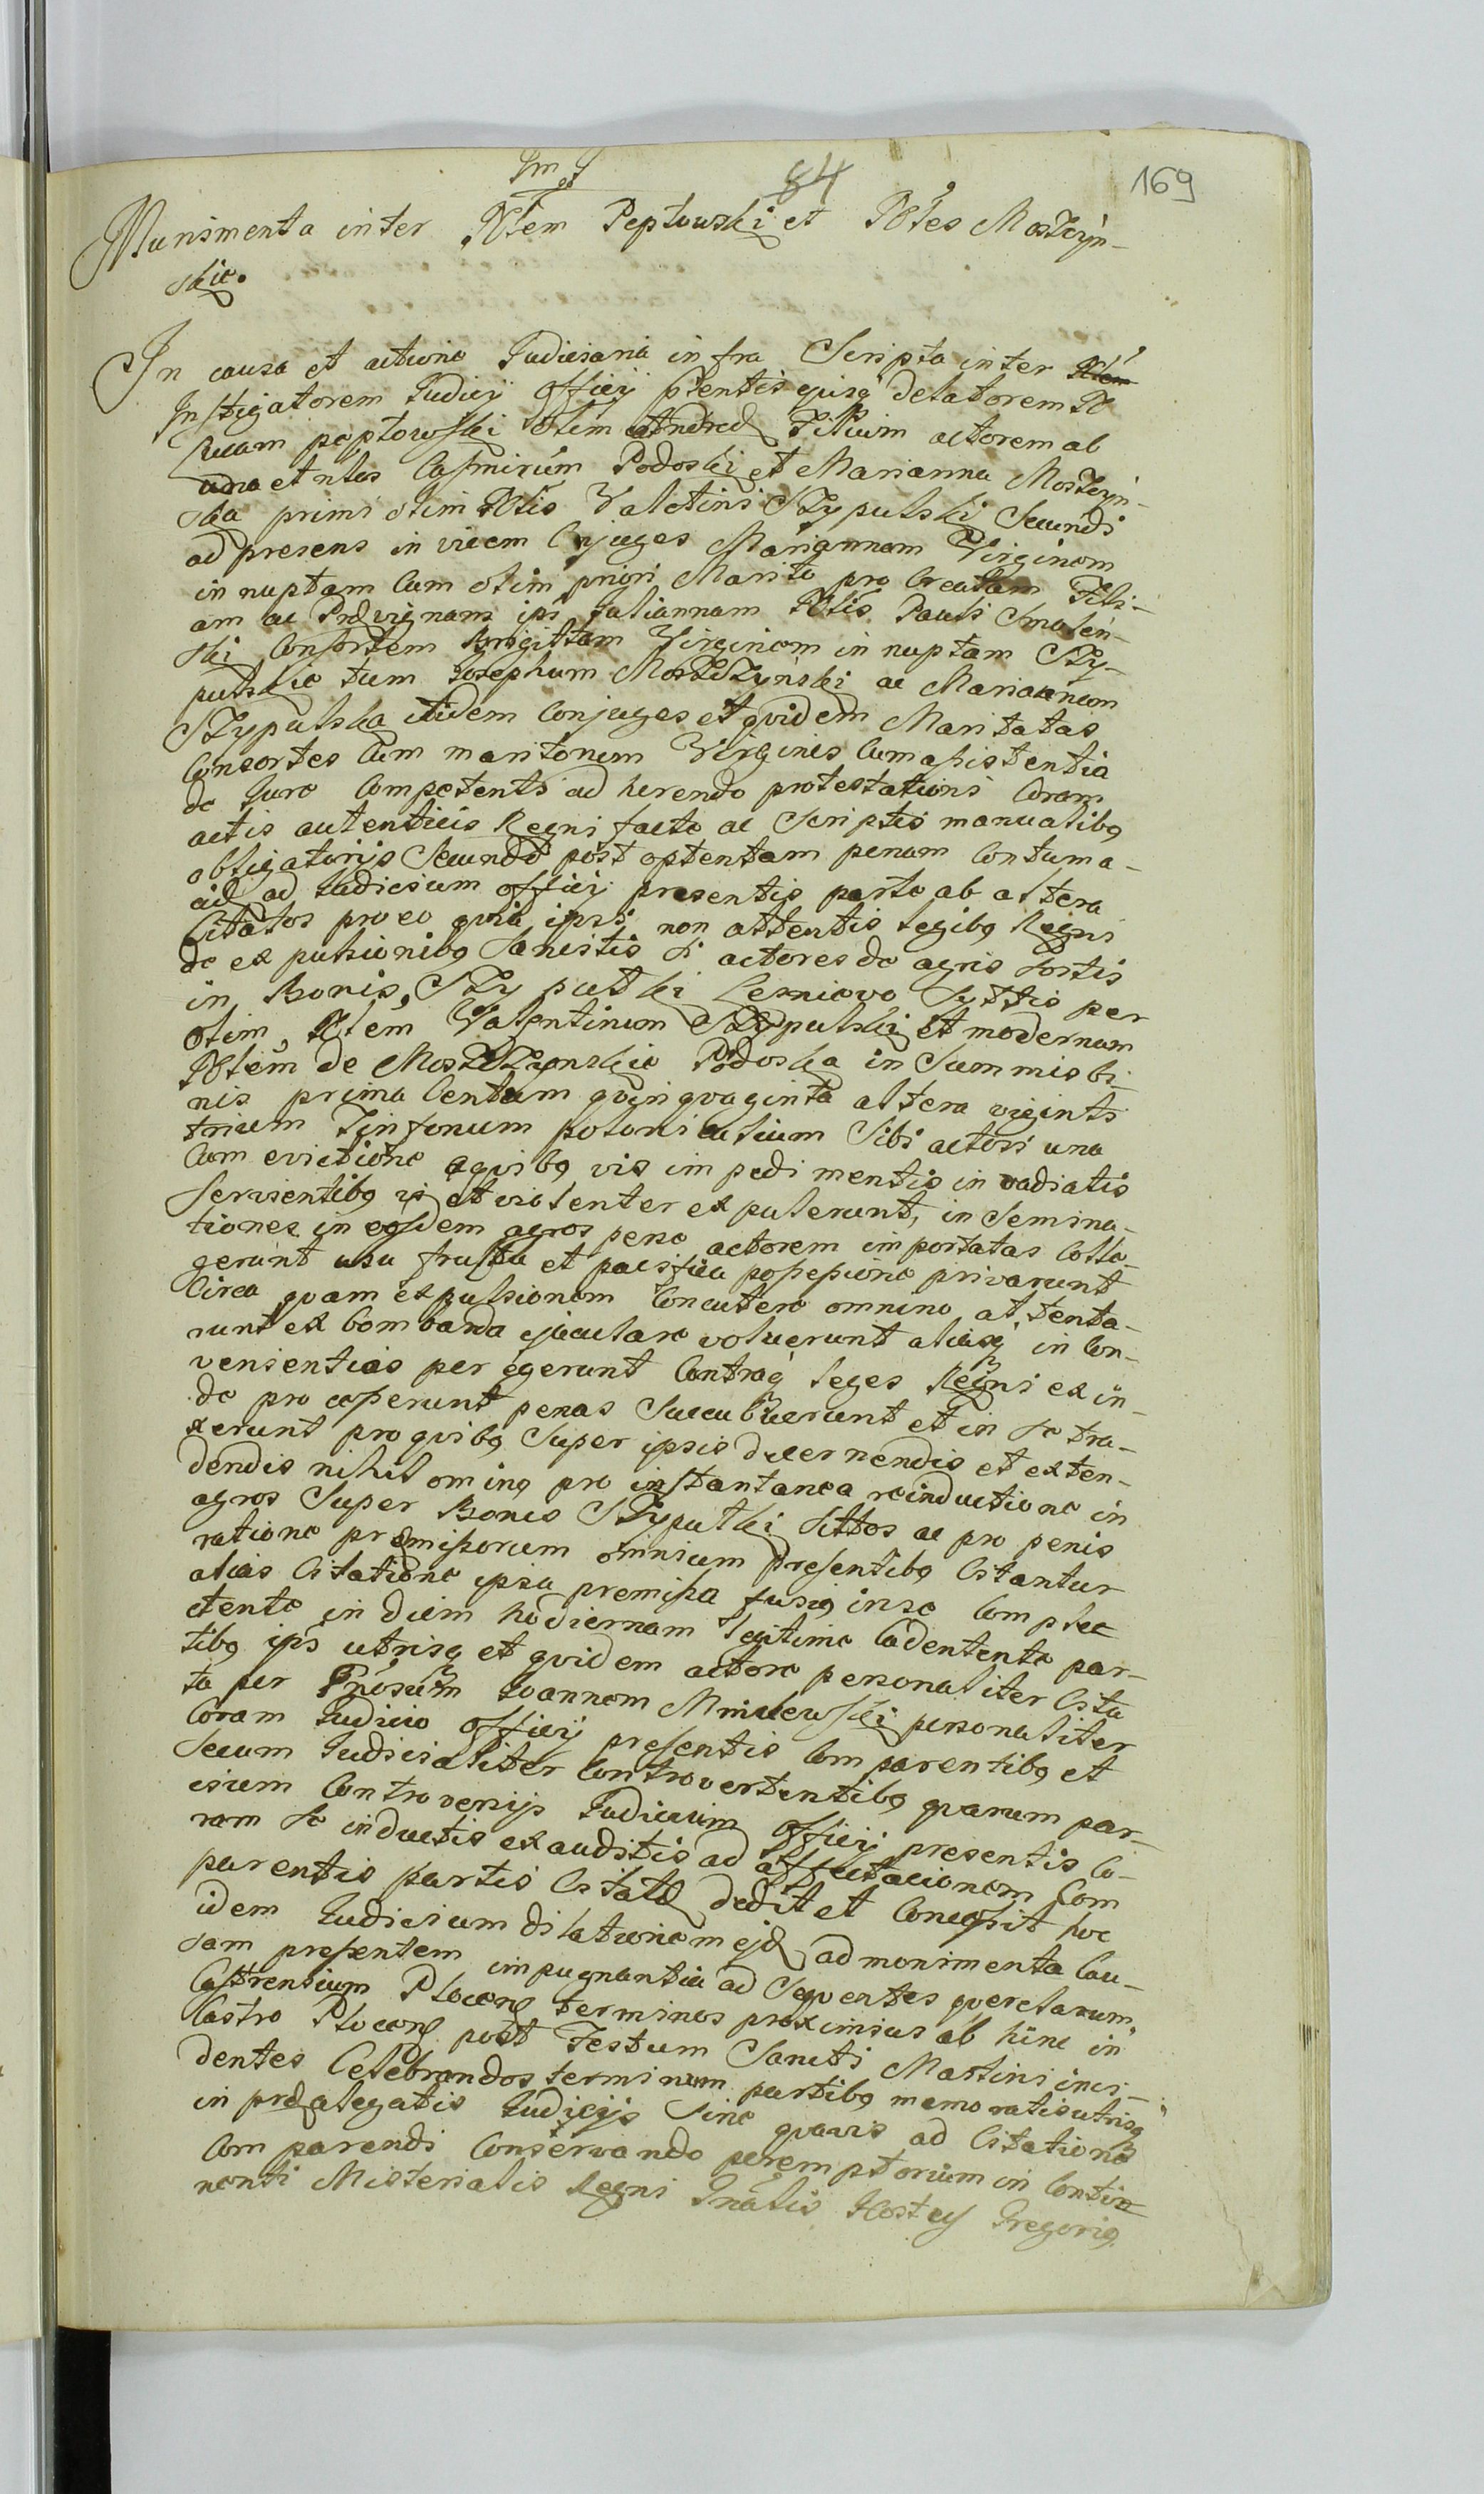 169
84
Munimenta inter Nblem Peptowski et Nbles Moszczyn-
skie.
In causa et actione Judiciaria infra Scripta inter
Instigatorem Judicij officij pñentis ejusq delatorem N
Lucam peptowski olim Andreæ Filium actorem ab
una et nbles Casimirum Podoski et Marianna Moszczyn-
ska primi olim Nblis Valetini Szypulski Secundi
ad presens in vicem Conjuges Mariannam Virginem
in nuptam Cum olim priori Marito pro Creatam Fili-
am ac Prævignam ipi Juliannam Nblis Pauli Smolen-
ski Consortem Brigittam Virginem in nuptam Szy-
pulskie tum Josephum Moszczynski ac Mariannam
Szypulska itidem Conjuges et quidem Maritatas
Consortes Cum maritorum Virgines Cum assistentia
de Jure Competenti ad herendo protestationi Coram
actis autenticis Regni facte ac Scriptis manualibq
obligatorijs Secundo post optentam penam Contuma-
ciæ ad Judicium officij presentis parte ab altera
Citatos pro eo quia ipsi non attentis legibq Regni
de expulsionibq Sancitis Si actores de agris Sortis
in Bonis Szyputki Lesniewo Syttis per
olim Nblem Valentinum Szypulski et modernam
Nblem de Moszczynskie Podoska in Summis bi-
nis prima Centum quinquaginta altera viginti
trium Tinforum polonicalium Sibi actori una
Cum evictione aquibq vis impedimentis in vadiatis
Servientibq vi et violenter expulerunt, in Semina-
tiones in eosdem agros perse actorem importatas Colle-
gerunt usu fructu et pacifica possessione privarunt
Circa quam expulsionem Concutere omnino attenta-
runt ex bombarda ejaculare voluerunt aliasq in Con-
venientias per egerunt Contraq leges Regni ex in-
de pro cesserunt penas Succubuerunt et in se tra-
xerunt pro quibq Super ipsis decernendis et exten-
dendis nihilominq pro instantanea reinductione in
agros Super Bonis Szyputki Sittos ac pro penis
ratione præmissorum omnium presentibq Citantur
alias Citatione ipsa premissa fusiq inse Complec
ctente in diem hodiernam legitime Cadentente par-
tibq ipis utrisq et quidem actore personaliter Cita
ta per Joannem Mniewski personaliter
Coram Judicio officij presentis Comparentibq et
Secum Judicialiter Controvertentibq quarum par-
cium Controversijs Judicium officij presentis Co-
ram Se inductis exauditis ad affectacionem Com
parentis partis Citatæ dedit et Concessit hoc
idem Judicium dilationem ejd ad monimenta Cau-
sam presentem impugnantia ad Sequentes querelarum
Castrensium Plocens terminos proximius ab hinc in
Castro Plocens post Festum Sancti Martini inci-
dentes Celebrandos terminum partibq memoratis utrisq
in præalegatis Judicijs Sine quavis ad Citatione
Comparendi Conservando peremptorium in Conti
nenti Misterialis Regni Gnalis Gregoriq